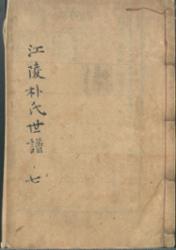 江陵朴氏世譜 七